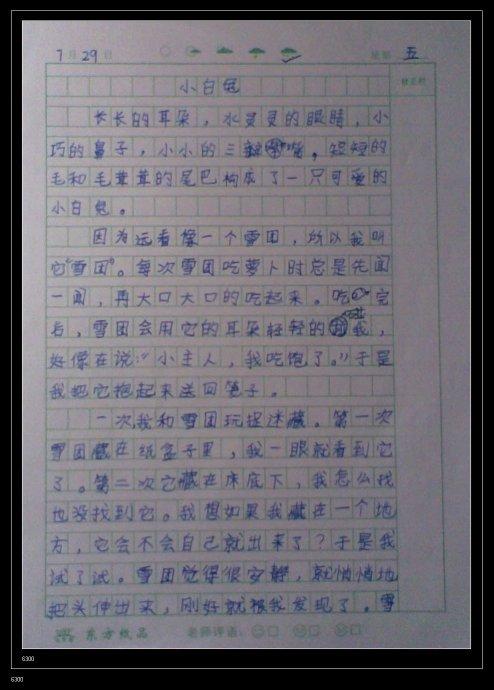 7月29日 星期 五
小白兔
校正栏
长长的耳朵，水灵灵的眼睛，小
巧的鼻子，小小的三瓣嘴。短短的
毛和毛茸茸的尾巴构成了一只可爱的
小白兔。
因为远看像一个雪团，所以我叫
它“雪团”。每次雪团吃萝卜时总是先闻
一闻，再大口大口的吃起来。吃完
后，雪团会用它的耳朵轻轻的我，
好像在说：“小主人，我吃饱了。”于是
我把它抱起来送回笼子。
一次我和雪团玩捉迷藏。第一次
雪团藏在纸盒子里，我一眼就看到它
了。第二次它藏在床底下，我怎么找
也没找到它。我想如果我藏在一个地
方，它会不会自己就出来了？于是我
试了试。雪团觉得很安静，就悄悄地
把头伸出来，刚好就被我发现了。雪
东方纸品 老师评语：
6300
6300